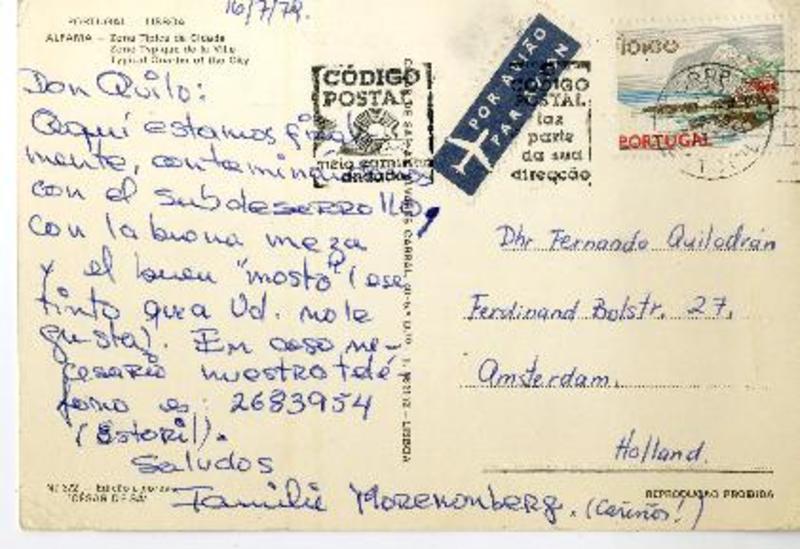 16/7/79.
PORTUGAL - LISBOA
ALFAMA - Zona Típica da Cidade
Zone Typique de la Ville
Typical Quarter of the City
Don Quilo:
Aquí estamos final
mente, contaminandonos
con el subdeserrollo,
con la buena meza
y el buen "mosto" (ese
tinto que a Ud. no le
gusta). En caso ne-
cesario nuestro telé
fono es: 2683954
(Estoril).
Saludos
Familie Morenonberg. (Cariños!)
CÓDIGO
POSTAL
meio caminho
andado
POR AVIÃO
PAR AVION
CÓDIGO
POSTAL
faz
parte
da sua
direcção
10$00
PORTUGAL
Dhr Fernando Quilodrán
Ferdinand Bolstr. 27,
Amsterdam.
Holland.
LISBOA
REPRODUÇÃO PROIBIDA